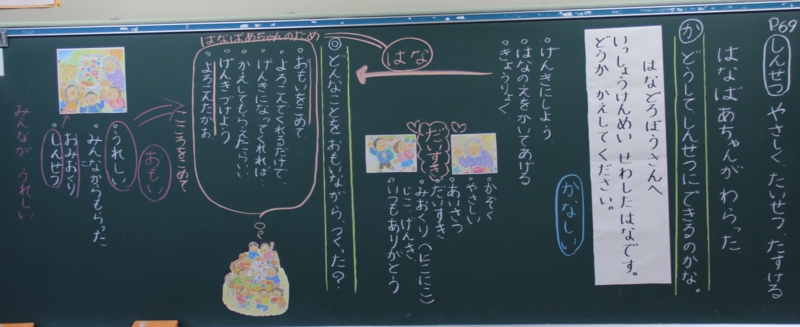 P69
しんせつ やさしく たいせつ たすける
はなばあちゃんが わらった
か どうしてしんせつにできるのかな。
はなどろぼうさんへ
いっしょうけんめい せわしたはなです。
どうか かえしてください。
かなしい
・げんきにしよう
・はなのえをかいてあげる
・きょうりょく
はな
だいすき
・かぞく
・やさしい
・あいさつ
・だいすき
・みおくり(へにこにこ)
・にこ げんき
・いつもありがとう
◎どんなことを おもいながら つくった?
はなばあちゃんのため
・おもいをこめて
・よろこんでくれるだけで、
・げんきになってくれれば・
・かえしてもらえたらいい
・げんきづけよう
・よろこんだかお
こころをこめて
おもい
・うれしい
・みんなからもらった
・おみおくり
・しんせつ
みんなが うれしい